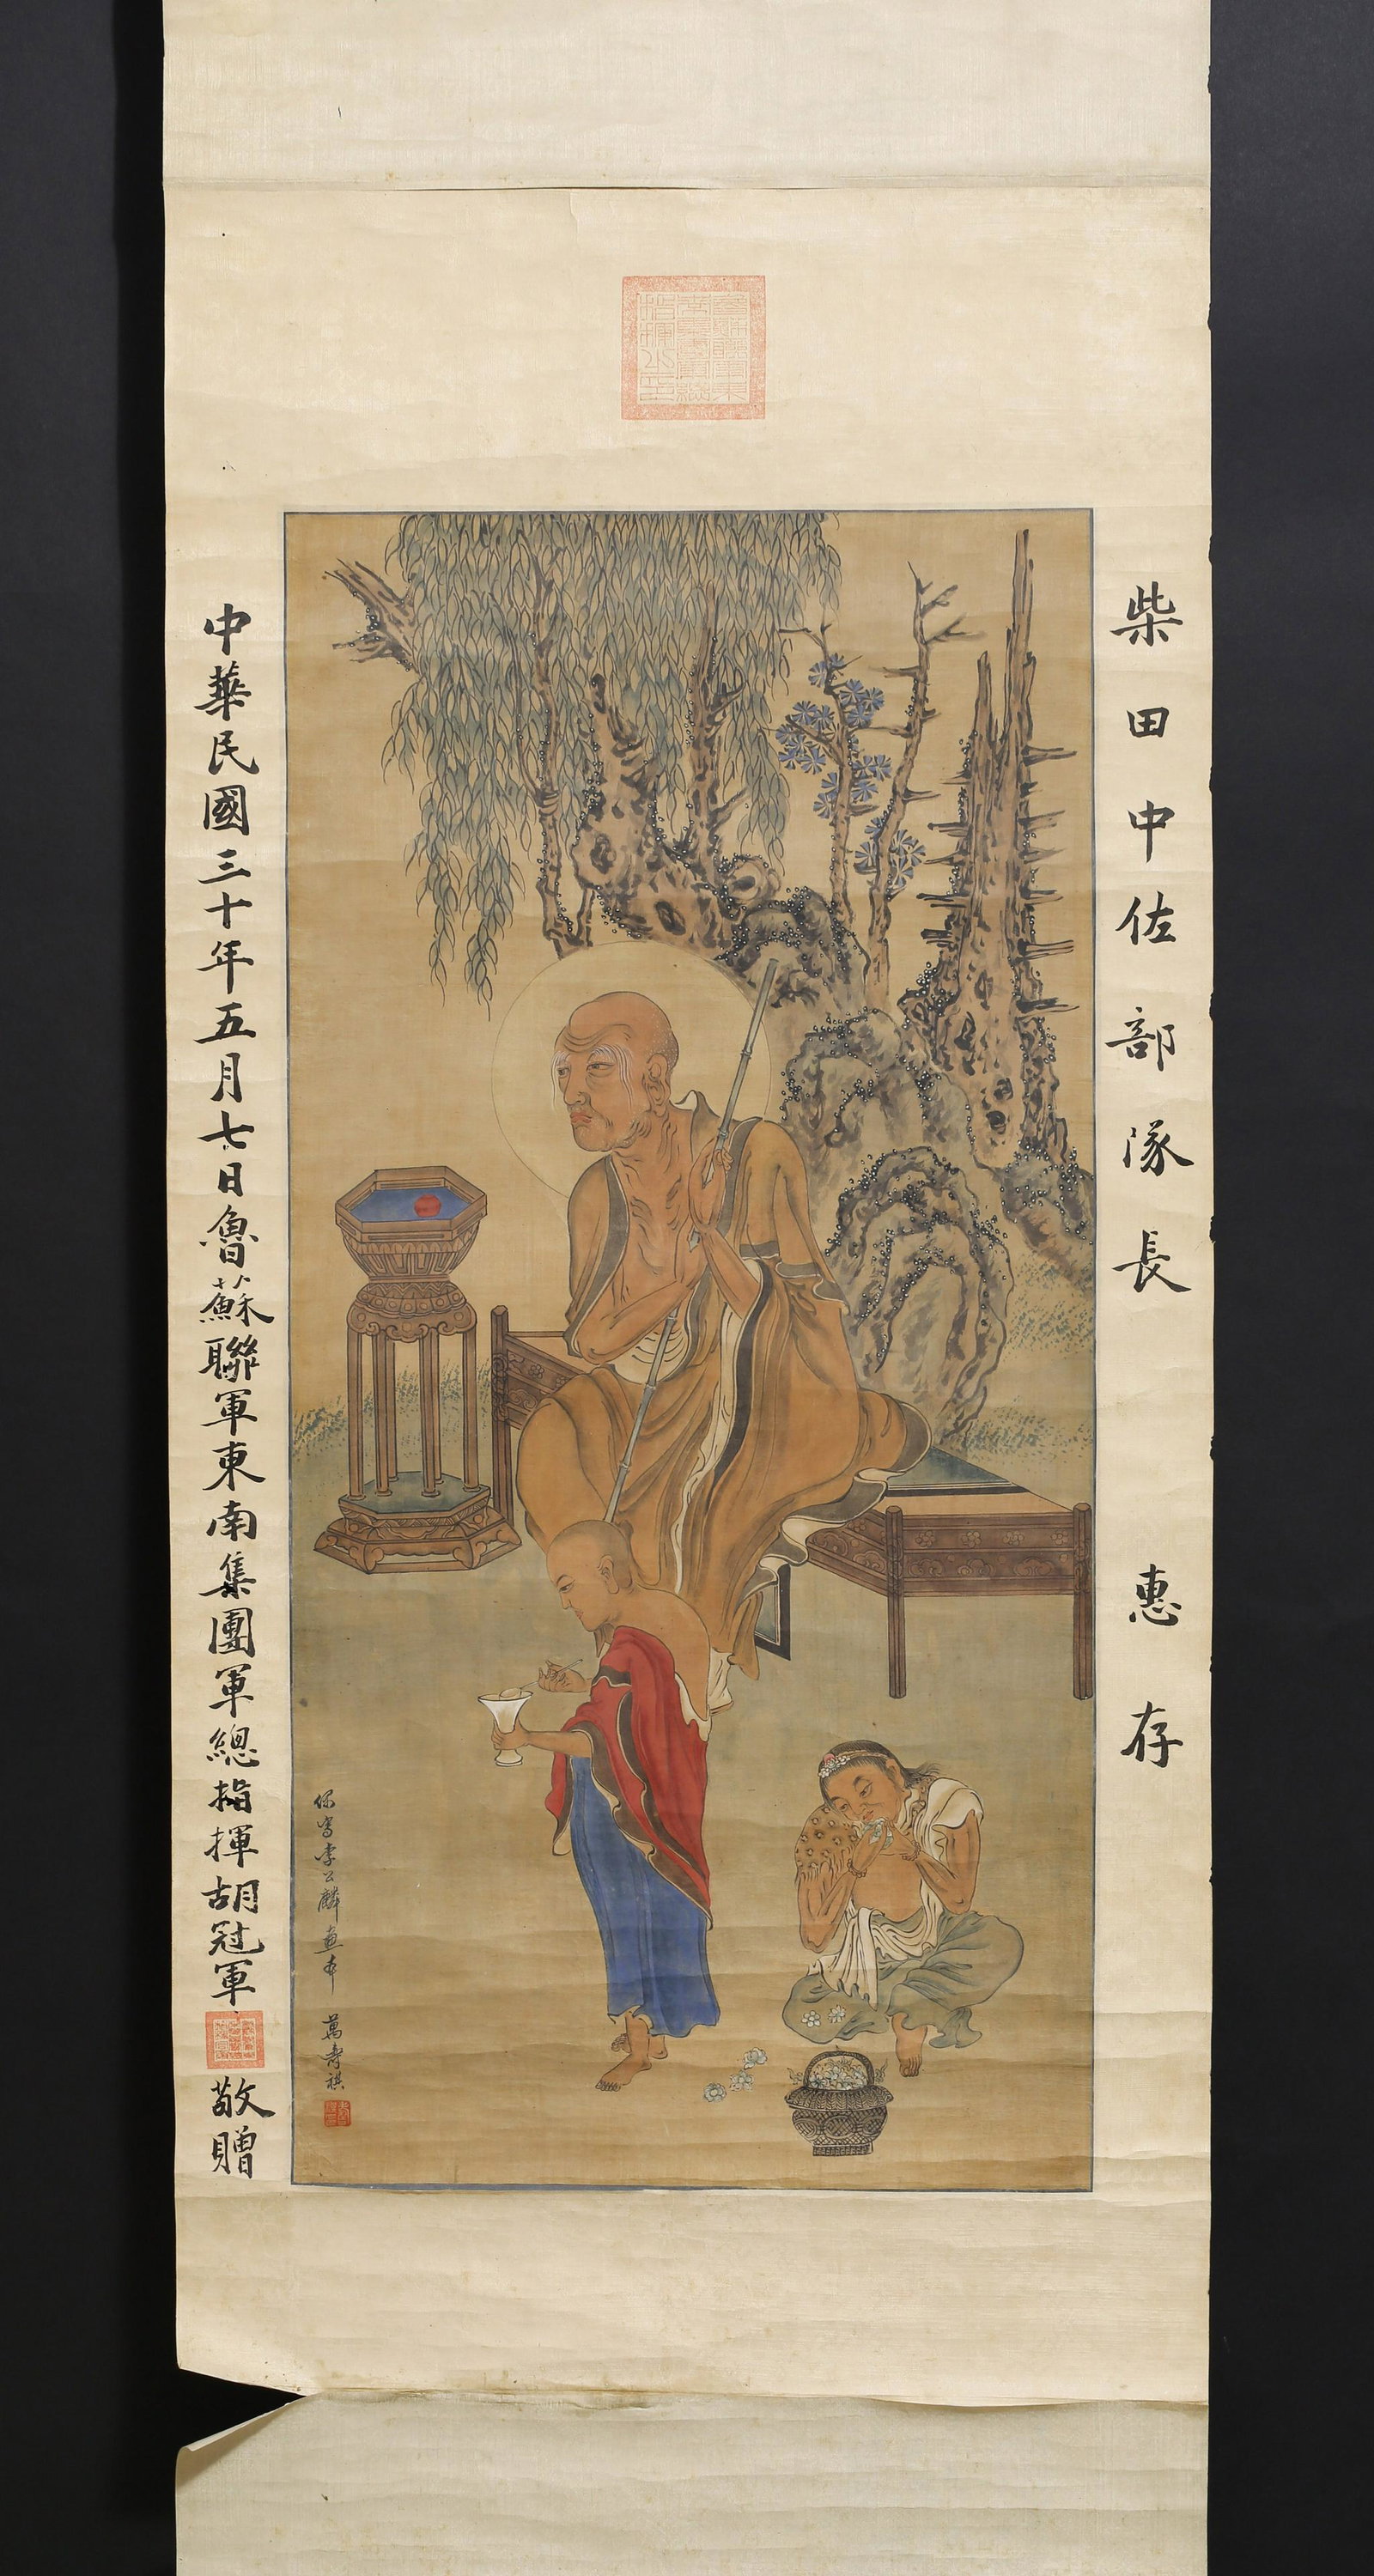 柴田中佐部隊長 惠存
中華民國三十年五月七日魯蘇聯軍東南集團軍總指揮胡冠軍 敬贈
李公麟畫本 萬壽祺